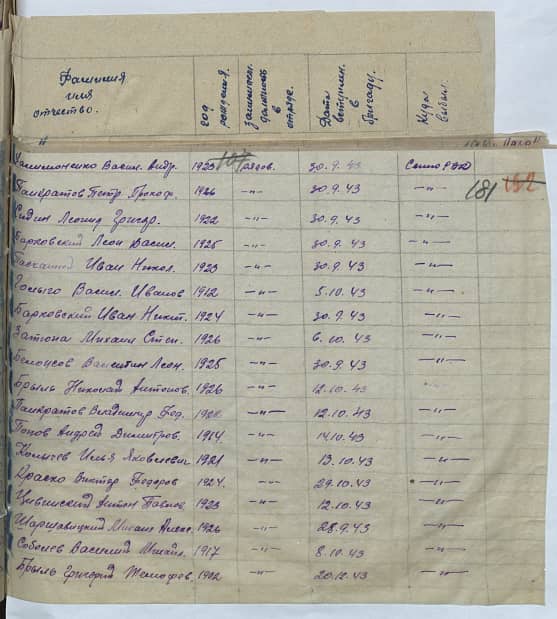 Фамилия имя отчество. год рождения. занимаем. должность в отряде. Дата вступлен. в бригаду. Куда выбыл.
Васил. Андр. 1923 рядов. 30.9.43
181 182
Панкратов Петр Прокоф. 1926 —"— 30.9.43 —"—
Леонид Григор. 1922 —"— 30.9.43 —"—
Барковский Леон Васил. 1925 —"— 30.9.43 —"—
Иван Никол. 1923 —"— 30.9.43 —"—
Васил. Иванов 1912 —"— 5.10.43 —"—
Барковский Иван Никит. 1924 —"— 30.9.43 —"—
Михаил Степ. 1926 —"— 6.10.43 —"—
Белоусов Валентин Леон. 1925 —"— 30.9.43 —"—
Брыль Николай Антонов. 1926 —"— 12.10.43 —"—
Панкратов Владимир Фед. —"— 12.10.43 —"—
Попов Андрей Димитров. 1914 —"— 14.10.43 —"—
Копычев Илья Яковлевич 1921 —"— 13.10.43 —"—
Драско Виктор Федоров 1924. —"— 29.10.43 —"—
Антон Павлов 1923 —"— 12.10.43 —"—
Шаршавицкий Михаил Алекс. 1926 —"— 28.9.43 —"—
Соболев Василий Михайл. 1917 —"— 8.10.43 —"—
Брыль Григорий 1902 —"— 20.12.43 —"—